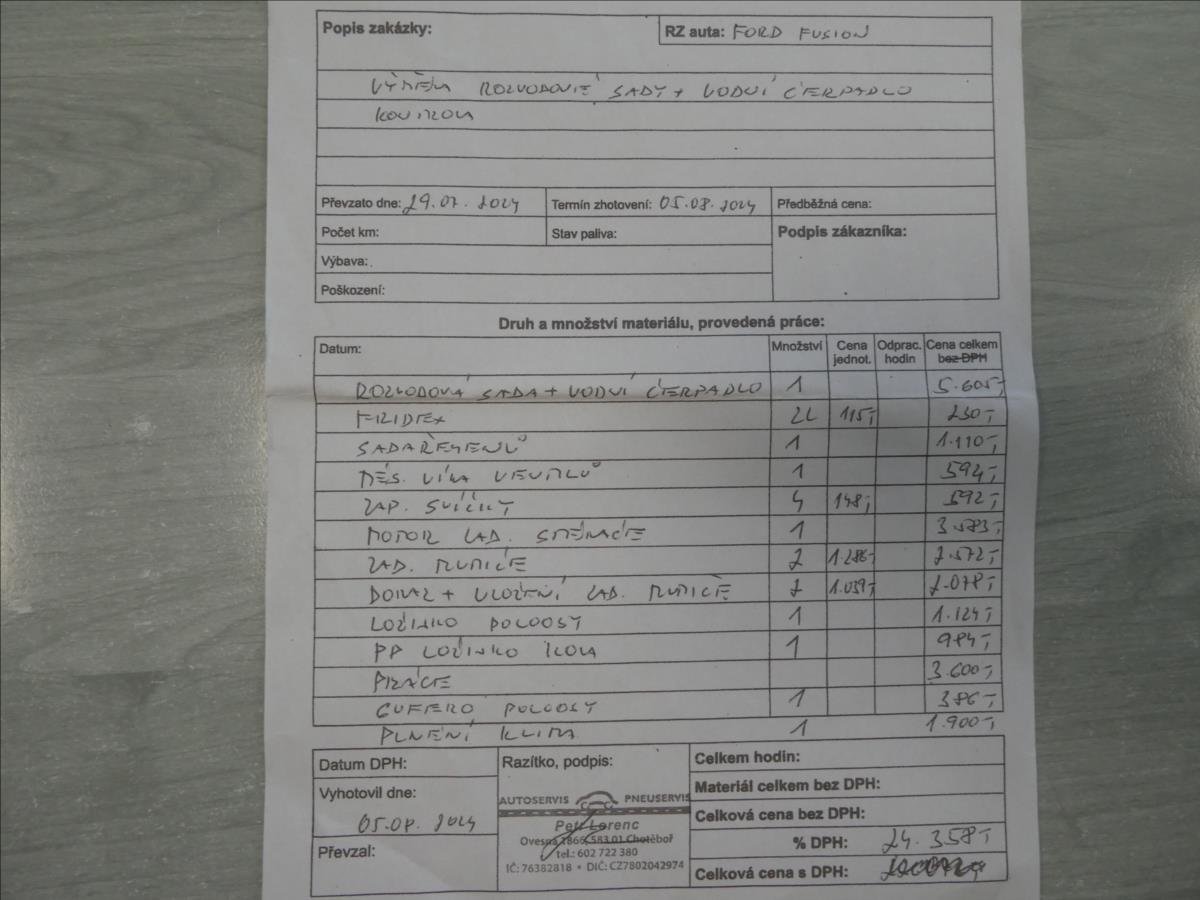 Popis zakázky: RZ auta: FORD FUSION
VÝMĚNA ROZVODOVÉ SADY + VODNÍ ČERPADLO
KONTROLA
Převzato dne: 29.07.2024 Termín zhotovení: 05.08.2024 Předběžná cena:
Počet km: Stav paliva: Podpis zákazníka:
Výbava:
Poškození:
Druh a množství materiálu, provedená práce:
Datum: Množství Cena jednot. Odprac. hodin Cena celkem bez DPH
ROZVODOVÁ SADA + VODNÍ ČERPADLO 1 5.605,-
FRIDEX 2L 115,- 230,-
SADA ŘEMENŮ 1 1.110,-
TĚS. VÍKA VENTILŮ 1 594,-
ZAP. SVÍČKY 4 148,- 592,-
MOTOR ZAD. STĚRAČE 1 3.583,-
ZAD. TLUMIČE 2 1.286,- 2.572,-
DORAZ + ULOŽENÍ ZAD. TLUMIČE 2 1.039,- 2.078,-
LOŽISKO POLOOSY 1 1.124,-
PP LOŽISKO KOLA 1 984,-
PRÁCE 3.600,-
GUFERO POLOOSY 1 386,-
PLNĚNÍ KLIMA 1 1.900,-
Datum DPH: Razítko, podpis: Celkem hodin:
Vyhotovil dne: 05.08.2024 Materiál celkem bez DPH:
AUTOSERVIS PNEUSERVIS Celková cena bez DPH:
Petr Lorenc
Ovesná 1866, 583 01 Chotěboř % DPH: 24.358,-
Převzal: tel.: 602 722 380
IČ: 76382818 • DIČ: CZ7802042974 Celková cena s DPH: